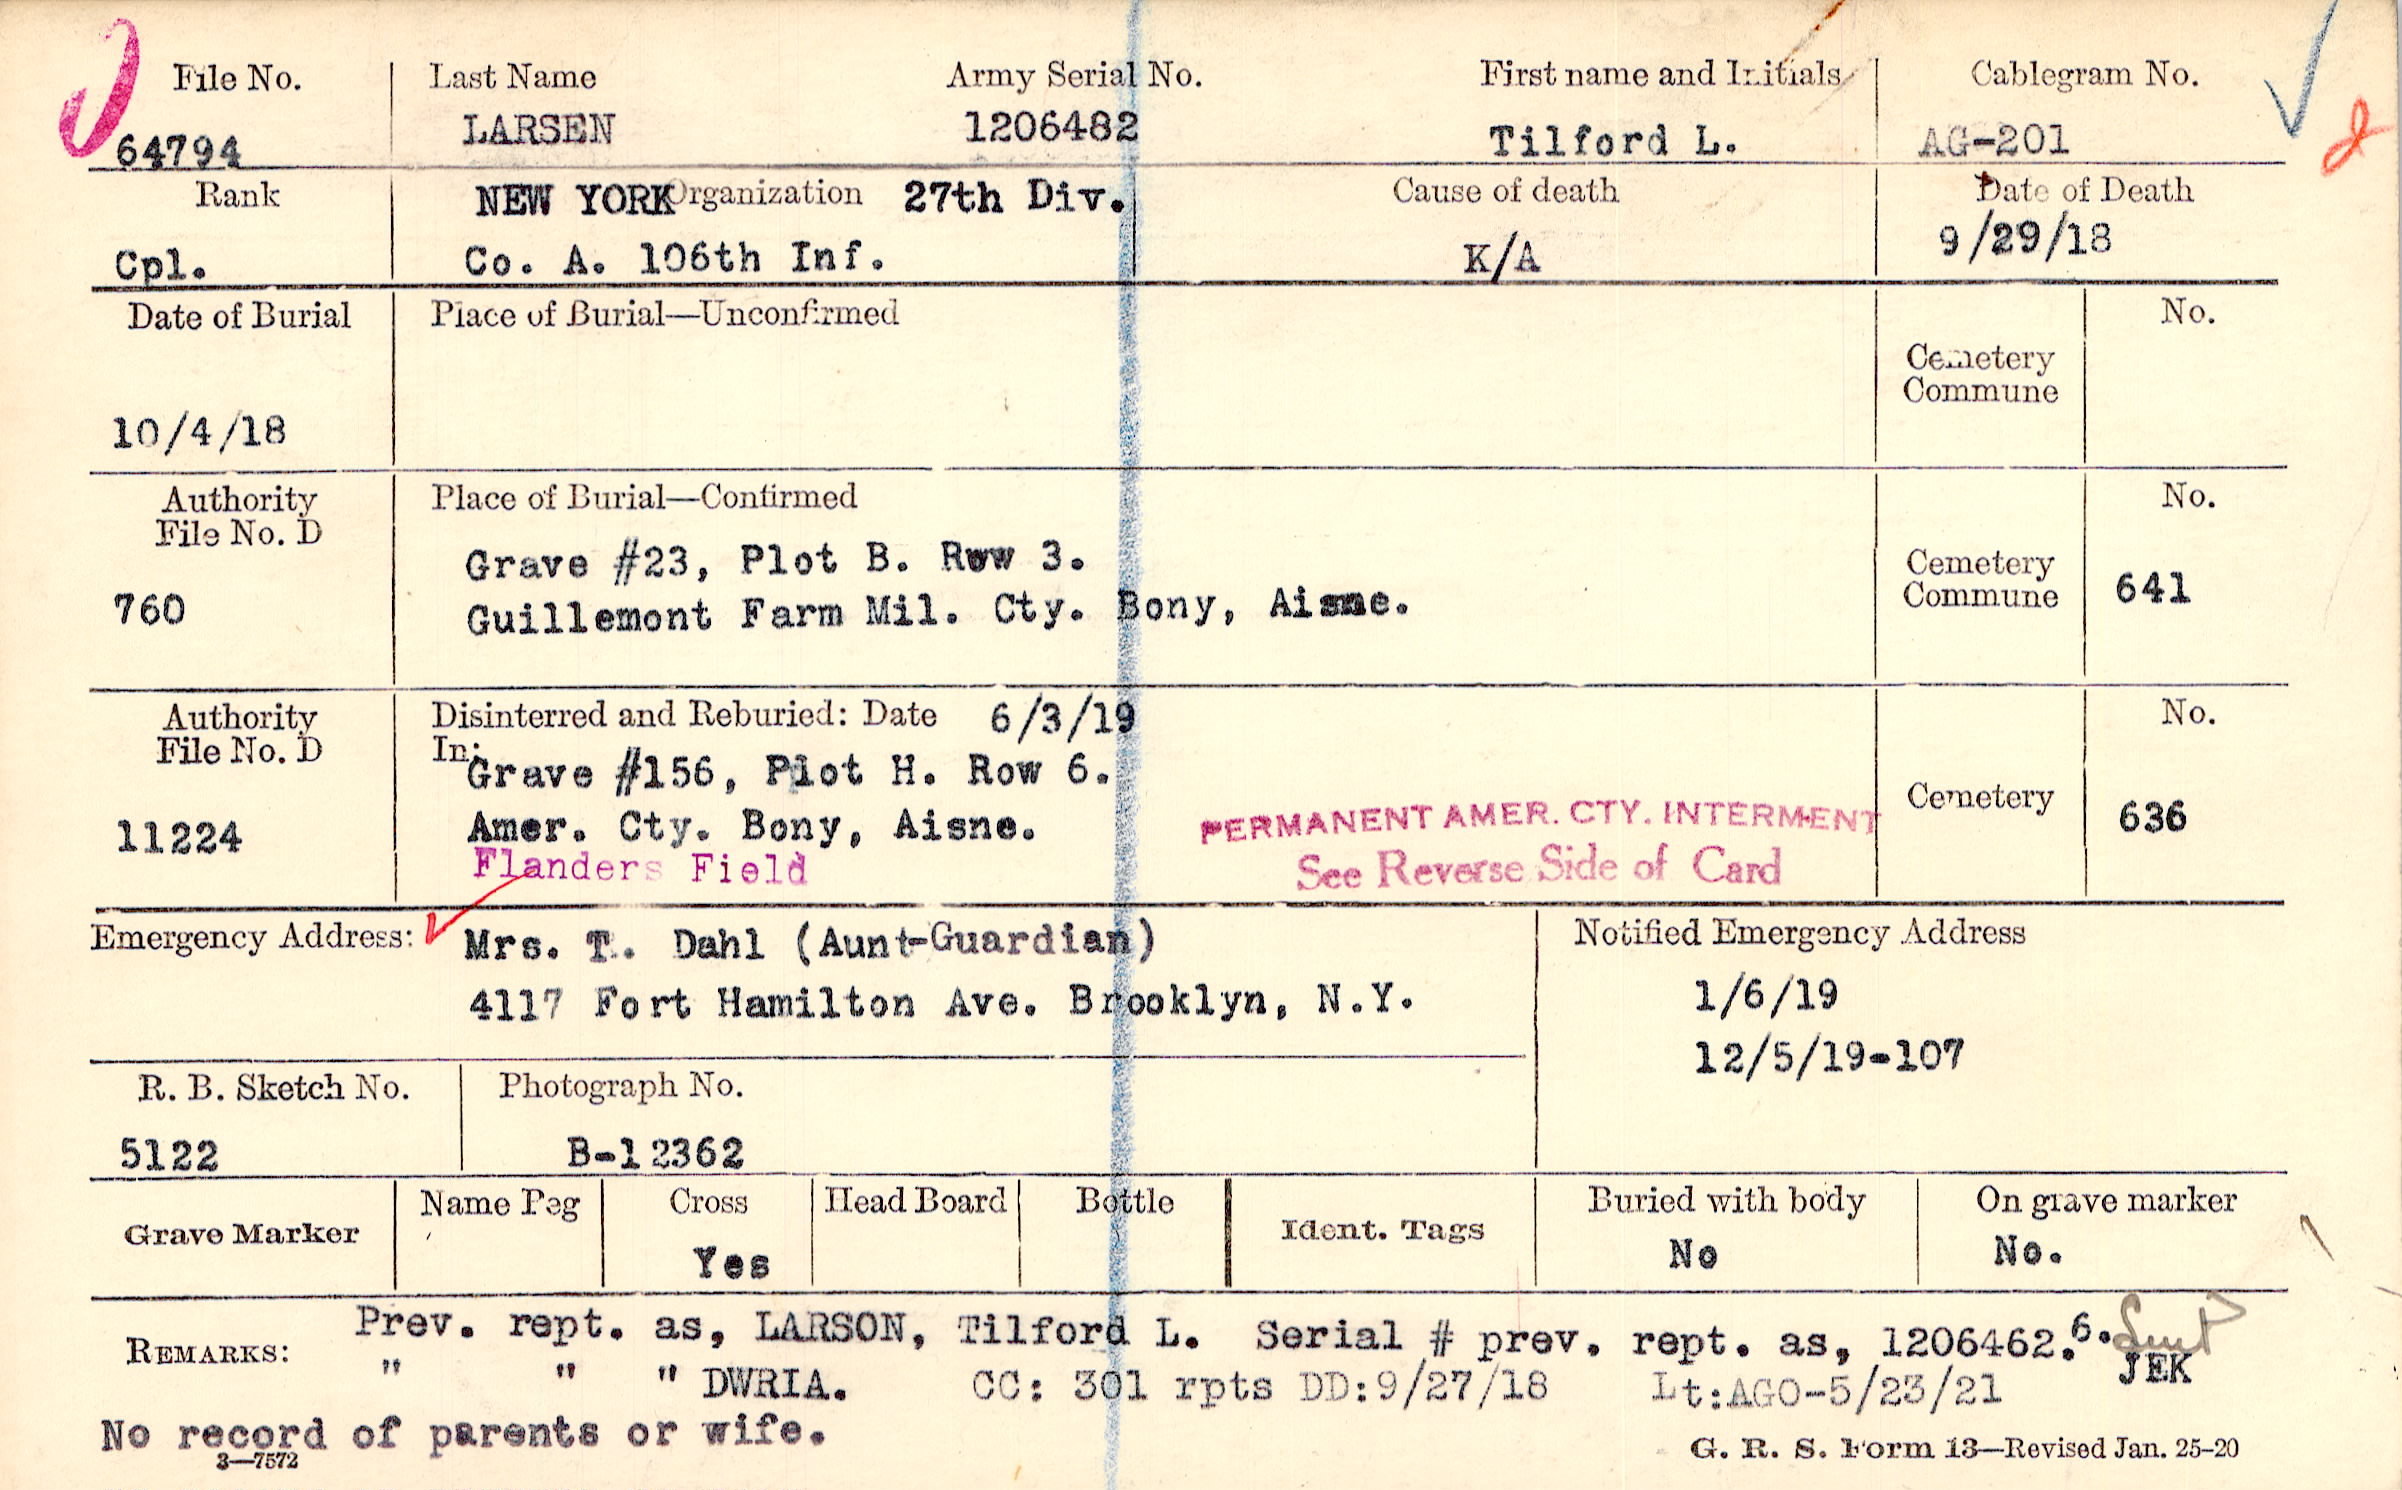 File No. Last Name Army Serial No. First name and Initials Cablegram No.
64794 LARSEN 1206482 Tilford L. AG-201
Rank NEW YORK Organization 27th Div. Cause of death Date of Death
Cpl. Co. A. 106th Inf. K/A 9/29/18
Date of Burial Place of Burial—Unconfirmed No.
Cemetery
Commune
10/4/18
Authority Place of Burial—Confirmed No.
File No. D
Grave #23, Plot B. Row 3.
Cemetery
Commune
760 Guillemont Farm Mil. Cty. Bony, Aisne. 641
Authority Disinterred and Reburied: Date 6/3/19 No.
File No. D In:
Grave #156, Plot H. Row 6.
Cemetery
11224 Amer. Cty. Bony, Aisne. PERMANENT AMER. CTY. INTERMENT 636
Flanders Field See Reverse Side of Card
Emergency Address: Mrs. T. Dahl (Aunt-Guardian) Notified Emergency Address
4117 Fort Hamilton Ave. Brooklyn, N.Y. 1/6/19
12/5/19-107
R. B. Sketch No. Photograph No.
5122 B-12362
Grave Marker Name Peg Cross Head Board Bottle Ident. Tags Buried with body On grave marker
Yes No No.
REMARKS: Prev. rept. as, LARSON, Tilford L. Serial # prev. rept. as, 1206462. 6.
" " " DWRIA. CC: 301 rpts DD:9/27/18 Lt:AGO-5/23/21 JEK
No record of parents or wife.
3—7572 G. R. S. Form 13—Revised Jan. 25-20